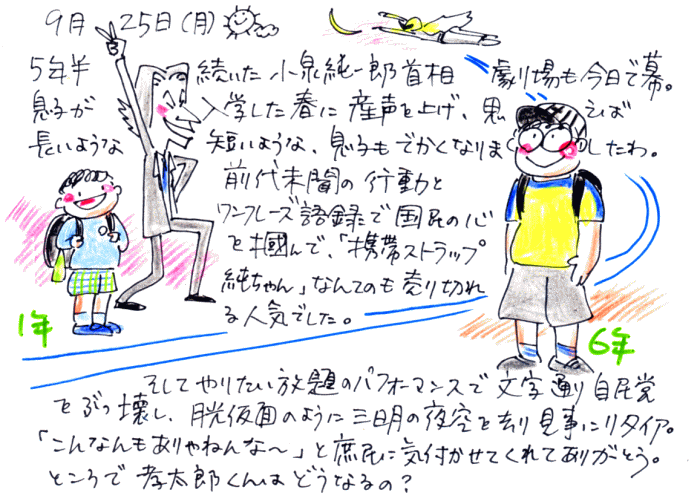 9月25日(月)
5年半続いた小泉純一郎首相劇場も今日で幕。
息子が入学した春に産声を上げ、思えば
長いような短いような、息子もでかくなりましたわ。
前代未聞の行動と
ワンフレーズ語録で国民の心
を掴んで、「携帯ストラップ
純ちゃん」なんてのも売り切れ
る人気でした。
1年
6年
そしてやりたい放題のパフォーマンスで文字通り自民党
をぶっ壊し、月光仮面のように三日月の夜空を去り見事にリタイア。
「こんなんもありやねんな〜」と庶民に気付かせてくれてありがとう。
ところで孝太郎くんはどうなるの?